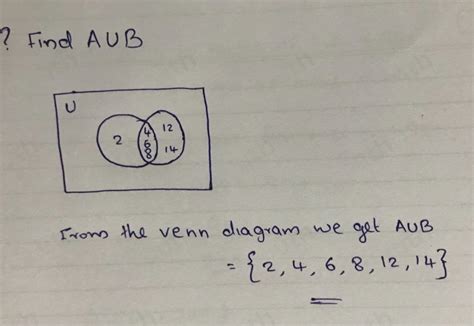 ? Find A∪B
U
2
4
6
8
12
14
From the venn diagram we get A∪B
= {2, 4, 6, 8, 12, 14}